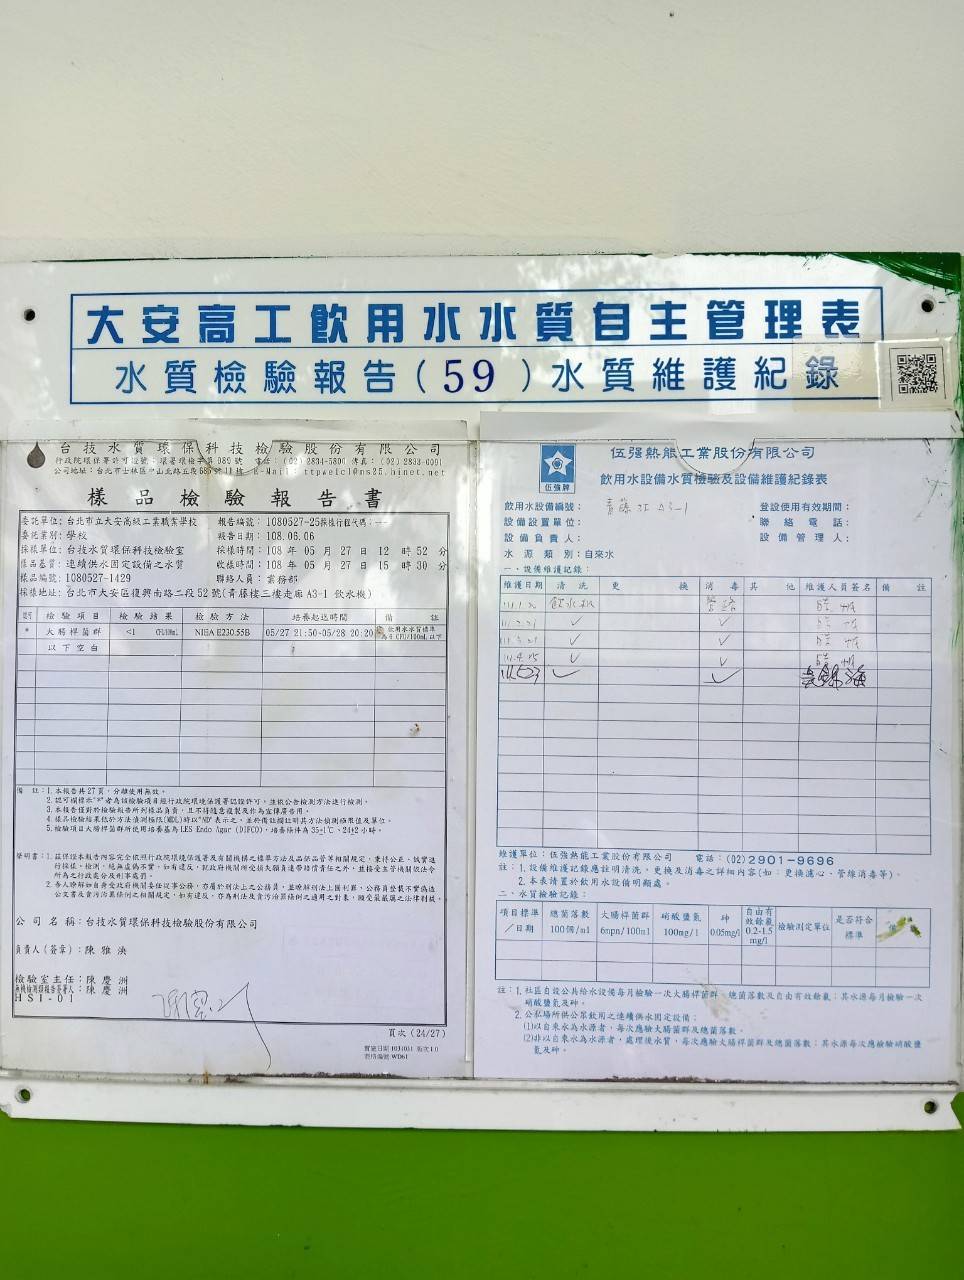 大安高工飲用水水質自主管理表
水質檢驗報告(59)水質維護紀錄
台技水質環保科技檢驗股份有限公司
行政院環保署許可證號:環署環檢字第089號 電話:(02)2834-5800 傳真:(02)2833-0091
公司地址:台北市士林區中山北路五段685號11樓 E-Mail: ttpwatcl@ms25.hinet.net
樣品檢驗報告書
委託單位:台北市立大安高級工業職業學校 報告編號:1080527-25採樣行程代碼:---
委託業別:學校 報告日期:108.06.06
採樣單位:台技水質環保科技檢驗室 採樣時間:108 年 05 月 27 日 12 時 52 分
樣品基質:連續供水固定設備之水質 收樣時間:108 年 05 月 27 日 15 時 30 分
樣品編號:1080527-1429 聯絡人員:業務部
採樣地址:台北市大安區復興南路二段52號(青藤樓三樓走廊 A3-1 飲水機)
檢驗項目 檢驗結果 檢驗方法 培養起迄時間 備註
* 大腸桿菌群 <1 CFU/100mL NIEA E230.55B 05/27 21:50~05/28 20:20 飲用水水質標準為6 CFU/100mL以下
以下空白
備 註:1.本報告共27頁,分離使用無效。
2.認可欄標示"*"者為該檢驗項目經行政院環境保護署認證許可,並依公告檢測方法進行檢測。
3.本報告僅對於檢驗報告所列樣品負責,且不得隨意複製及作為宣傳廣告用。
4.樣品檢驗結果低於方法偵測極限(MDL)時以"ND"表示之,並於備註欄註明其方法偵測極限值及單位。
5.檢驗項目大腸桿菌群所使用培養基為LES Endo Agar (DIFCO),培養條件為35±1℃、24±2小時。
聲明書:1.茲保證本報告內容完全依照行政院環境保護署及有關機構之標準方法及品保品管等相關規定,秉持公正、誠實進
行採樣、檢測,絕無虛偽不實,如有違反,就政府機關所受損失願負連帶賠償責任之外,並接受主管機關依法令
所為之行政處分及刑事處罰。
2.本人瞭解如自身受政府機關委任從事公務,亦屬於刑法上之公務員,並瞭解刑法上圖利罪、公務員登載不實偽造
公文書及貪污治罪條例之相關規定,如有違反,亦為刑法及貪污治罪條例之適用之對象,願受最嚴厲之法律制裁。
公司名稱:台技水質環保科技檢驗股份有限公司
負責人(簽章):陳雅泱
檢驗室主任:陳慶洲
無機檢測類報告簽署人:陳慶洲
HSI-01
頁次(24/27)
實施日期1031031 版次1.0
表格編號 WD61
伍強牌
伍强熱能工業股份有限公司
飲用水設備水質檢驗及設備維護紀錄表
飲用水設備編號:青藤3F A3-1 登設使用有效期間:
設備設置單位: 聯絡電話:
設備負責人: 設備管理人:
水源類別:自來水
一、設備維護記錄:
維護日期 清洗 更換 消毒 其他 維護人員簽名 備註
111.1.20 飲水机
111.2.21 ✓ ✓
111.3.21 ✓ ✓
111.4.25 ✓ ✓
111.5.23 ✓ ✓
維護單位:伍強熱能工業股份有限公司 電話:(02)2901-9696
註:1.設備維護記錄應註明清洗、更換及消毒之詳細內容(如:更換濾心、管線消毒等)。
2.本表請置於飲用水設備明顯處。
二、水質檢驗記錄:
項目標準/日期 總菌落數100個/ml 大腸桿菌群6npn/100ml 硝酸鹽氮100mg/l 砷0.05mg/l 自由有效餘氯0.2-1.5mg/l 檢驗測定單位 是否符合標準 備
註:1.社區自設公共給水設備每月檢驗一次大腸桿菌群、總菌落數及自由有效餘氯;其水源每月檢驗一次
硝酸鹽氮及砷。
2.公私場所供公眾飲用之連續供水固定設備:
(1)以自來水為水源者,每次應驗大腸菌群及總菌落數。
(2)非以自來水為水源者,處理後水質,每次應驗大腸桿菌群及總菌落數;其水源每次應檢驗硝酸鹽
氮及砷。